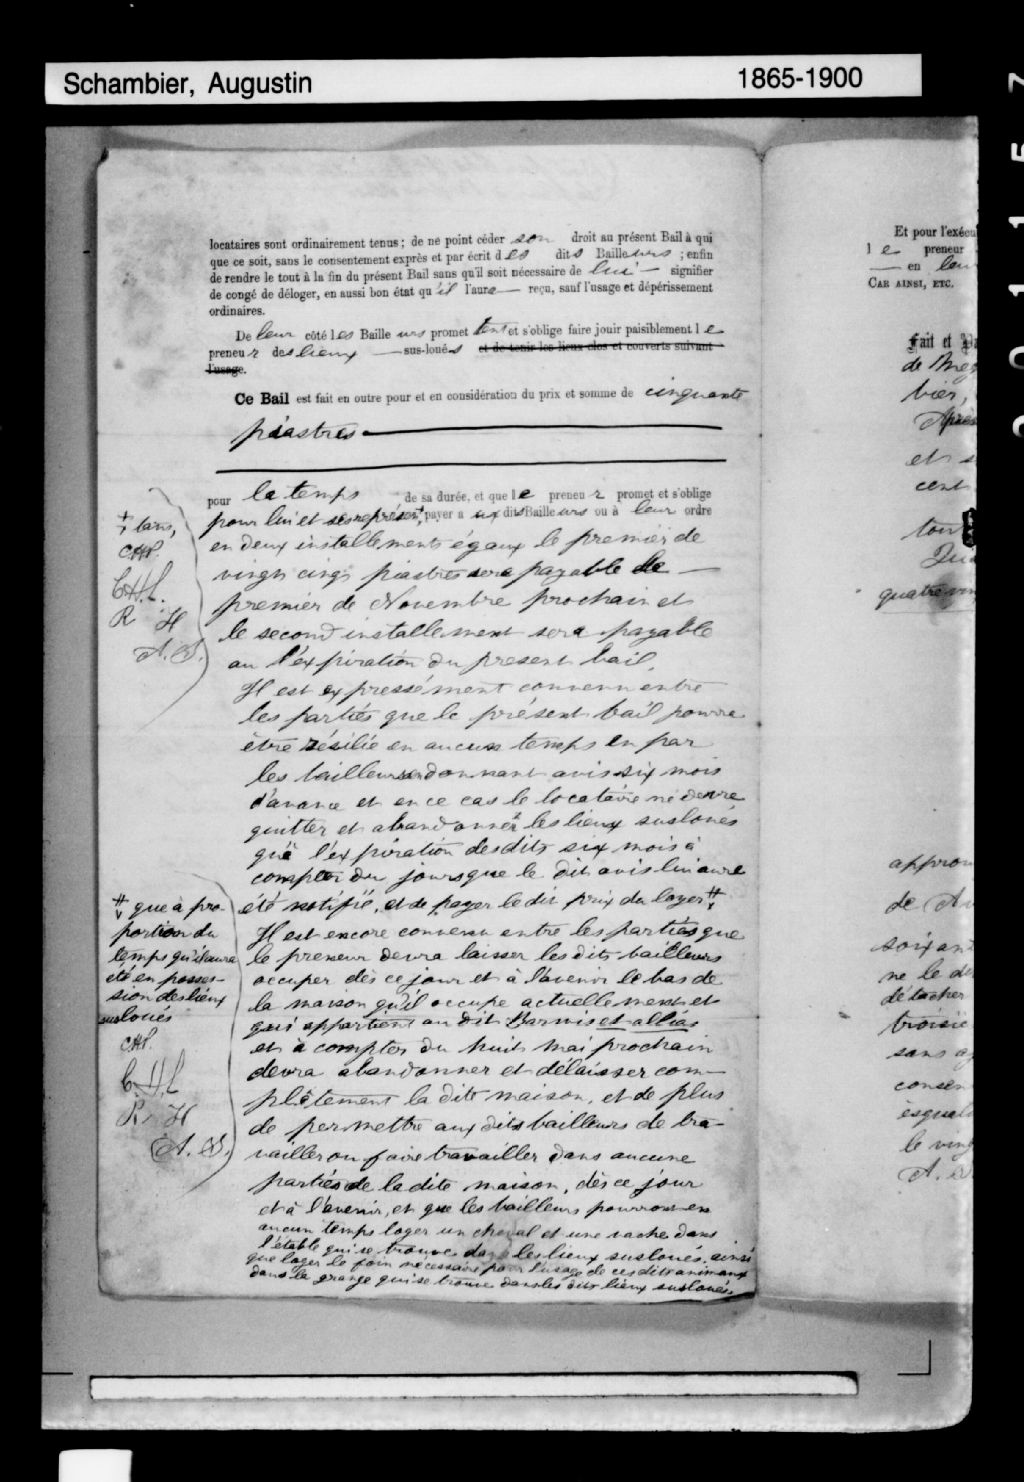 Schambier, Augustin 1865-1900
locataires sont ordinairement tenus ; de ne point céder son droit au présent Bail à qui
que ce soit, sans le consentement exprès et par écrit des dits Bailleurs ; enfin
de rendre le tout à la fin du présent Bail sans qu'il soit nécessaire de lui — signifier
de congé de déloger, en aussi bon état qu'il l'aura — reçu, sauf l'usage et dépérissement
ordinaires.
De leur côté les Bailleurs promettent et s'oblige faire jouir paisiblement le
preneur des lieux — sus-loués et de tenir les lieux clos et couverts suivant
l'usage.
Ce Bail est fait en outre pour et en considération du prix et somme de cinquante
piastres
pour le temps de sa durée, et que le preneur promet et s'oblige
pour lui et ses représent payer a ux dits Bailleurs ou à leur ordre
en deux installements égaux le premier de
vingt cinq piastres sera payable le —
premier de Novembre prochain et
le second installement sera payable
au l'expiration du present bail.
Il est expressément convenu entre
les parties que le présent bail pourra
être résilié en aucun temps en par
les bailleurs en donnant avis six mois
d'avance et en ce cas le locataire ne devra
quitter et abandonner les lieux susloués
qu'à l'expiration desdits six mois à
compter du jour que le dit avis lui aura
été notifié, et de payer le dit prix du loyer #
Il est encore convenu entre les parties que
le preneur devra laisser les dits bailleurs
occuper dès ce jour et à l'avenir le bas de
la maison qu'il occupe actuellement et
qui appartient au dit et allias
et à compter du huit mai prochain
devra abandonner et délaisser com-
plètement la dite maison, et de plus
de permettre aux dits bailleurs de tra-
vailler ou faire travailler dans aucune
parties de la dite maison, dès ce jour
et à l'avenir, et que les bailleurs pourront en
aucun temps loger un cheval et une vache dans
l'étable qui se trouve dans les lieux susloués, ainsi
que loger le foin nécessaire pour l'usage de ces dits animaux
dans la grange qui se trouve dans les dits lieux susloués.
+ tans,
C.H.L.
R H
A. S.
# que à pro-
portion du
temps qu'il aura
été en posses-
sion des lieux
susloués
C.H.L
R. H
A. S.
Et pour l'exécu
le preneur
— en leur
CAR AINSI, ETC.
Fait et Pa
de Meg
bier,
Après
et s
cent
tou
quatre vin
approu
de Au
soixan
ne le de
détacher
troisiè
sans a
consen
le ving
A. S